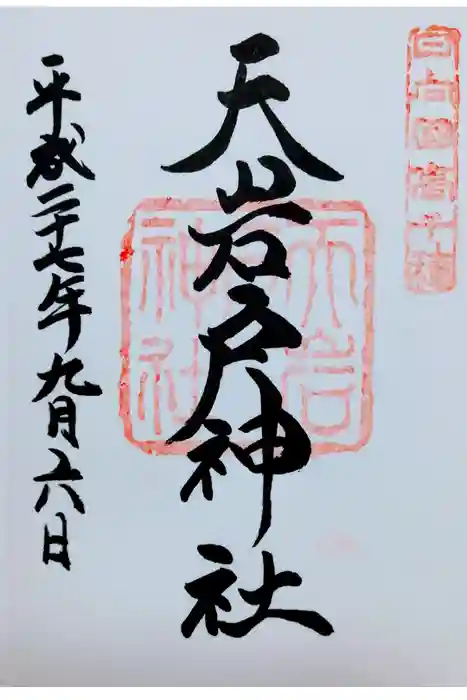 日向国高千穂
天岩戸神社
天岩
戸
神社
平成二十七年九月六日